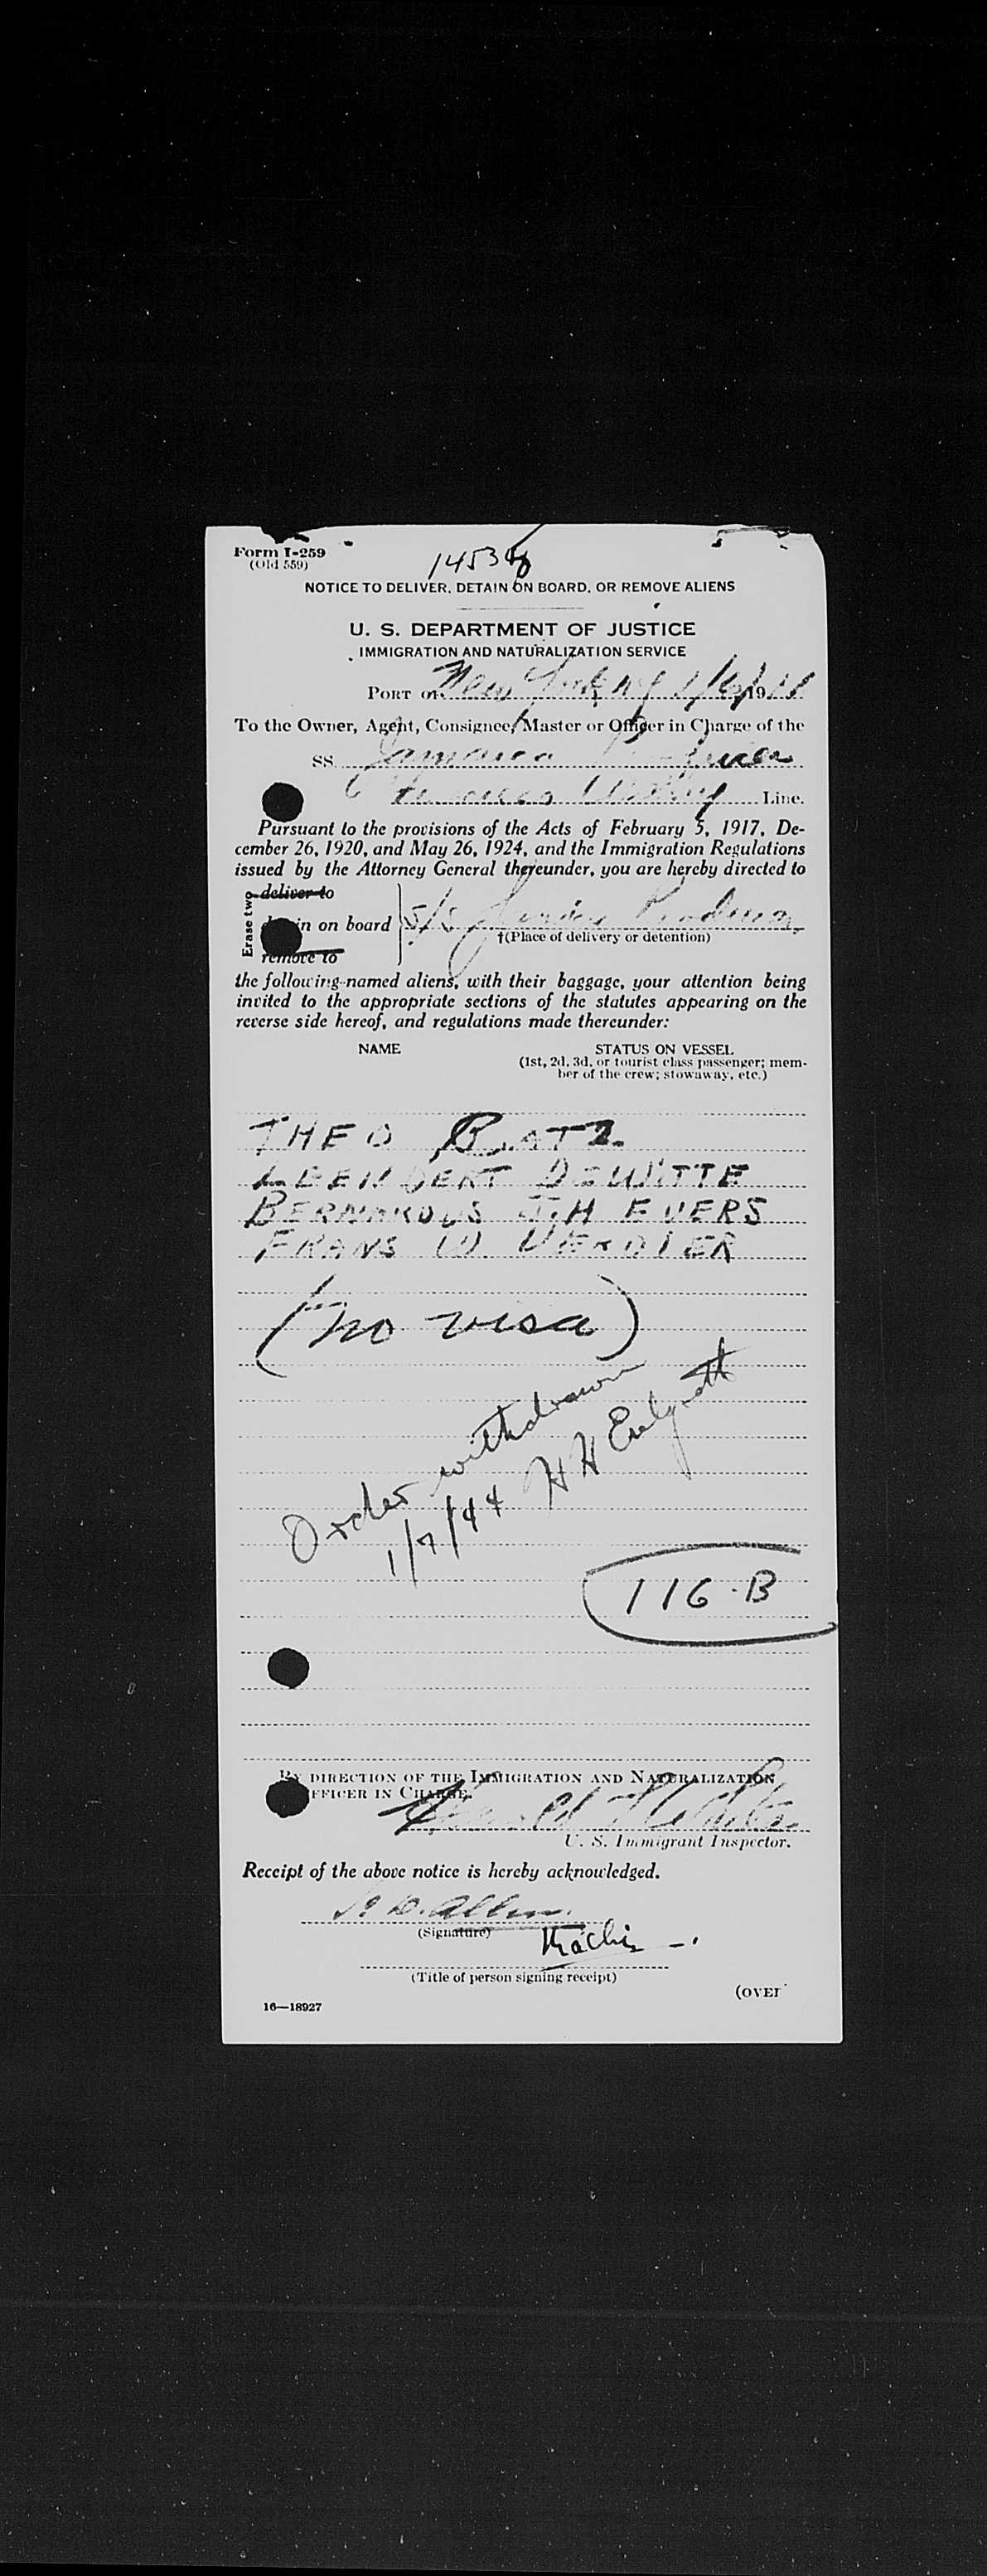 Form I-259
(Old 559)
NOTICE TO DELIVER, DETAIN ON BOARD, OR REMOVE ALIENS
U. S. DEPARTMENT OF JUSTICE
IMMIGRATION AND NATURALIZATION SERVICE
PORT OF New York NY 1/6/1944
To the Owner, Agent, Consignee, Master or Officer in Charge of the
SS. Jamaica Producer
Line.
Pursuant to the provisions of the Acts of February 5, 1917, De-
cember 26, 1920, and May 26, 1924, and the Immigration Regulations
issued by the Attorney General thereunder, you are hereby directed to
Erase two
deliver to
in on board S/S Jamaica Producer
†(Place of delivery or detention)
remove to
the following-named aliens, with their baggage, your attention being
invited to the appropriate sections of the statutes appearing on the
reverse side hereof, and regulations made thereunder:
NAME STATUS ON VESSEL
(1st, 2d, 3d, or tourist class passenger; mem-
ber of the crew; stowaway, etc.)
THEO
LEENDERT DEWITTE
BERNARDUS J.H EVERS
FRANS W VERDIER
(no visa)
Order withdrawn
1/7/44 H H
116-B
BY DIRECTION OF THE IMMIGRATION AND NATURALIZATION
OFFICER IN CHARGE.
U. S. Immigrant Inspector.
Receipt of the above notice is hereby acknowledged.
Allen.
(Signature)
(Title of person signing receipt)
(OVER
16—18927